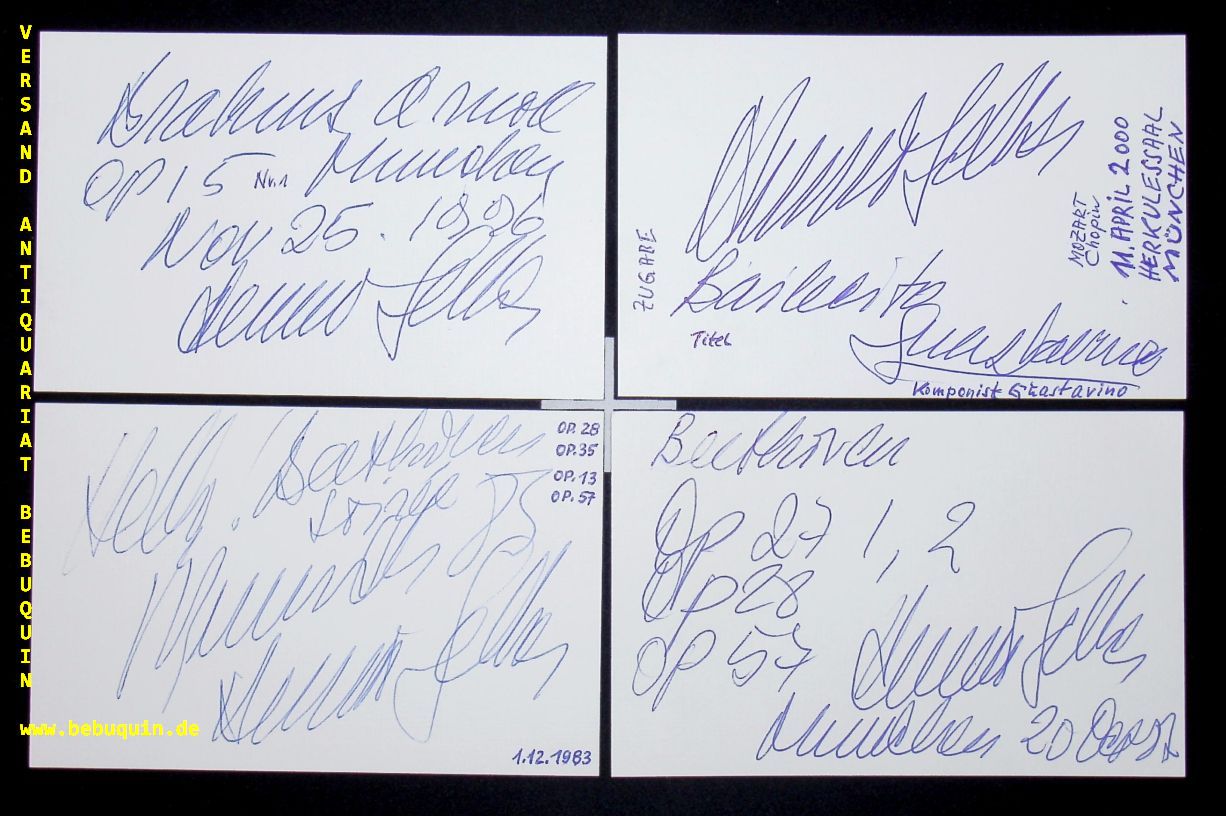 VERSAND ANTIQUARIAT BEBUQUIN
www.bebuquin.de
Brahms d moll
OP 15 Nr.1 München
Nov 25. 1996
Bruno Gelber
Bruno Gelber
ZUGABE
Bailecito
Titel
Guastavino
Komponist Guastavino
MOZART
Chopin
11. APRIL 2000
HERKULESSAAL
MÜNCHEN
Beethoven
OP. 28
OP. 35
OP. 13
OP. 57
München
Bruno Gelber
1.12.1983
Beethoven
Op 27 1, 2
Op 28
Op 57
Bruno Gelber
München 20